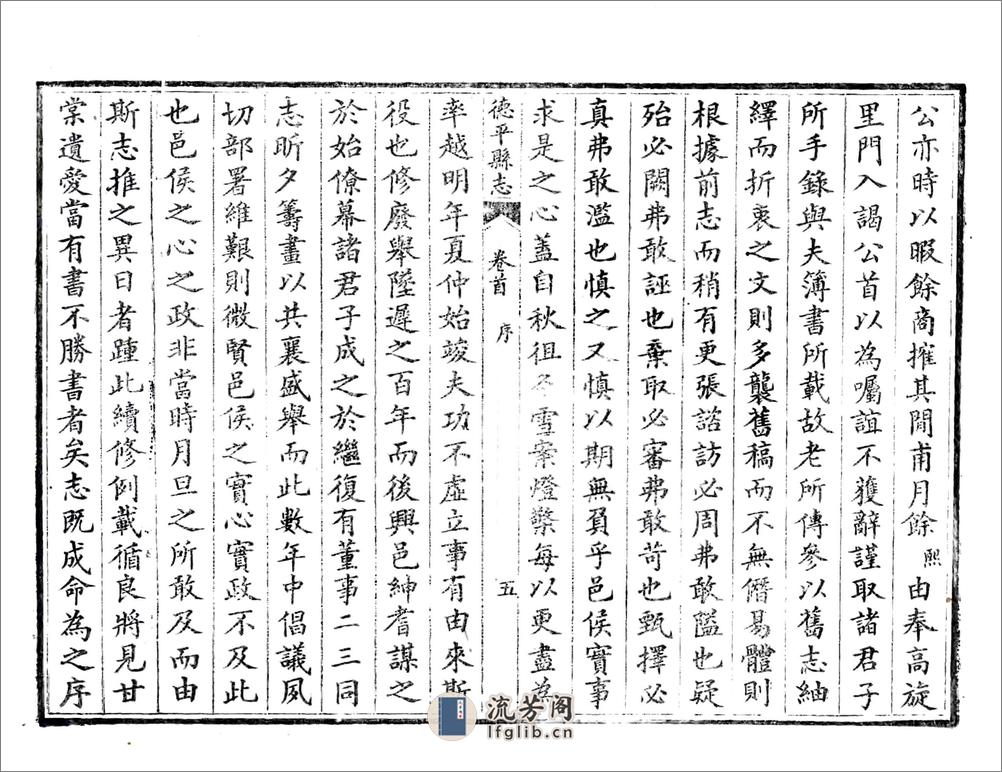 公亦時以暇餘商搉其間甫月餘熙由奉高旋
里門入謁公首以為囑誼不獲辭謹取諸君子
所手錄與夫簿書所載故老所傳參以舊志紬
繹而折衷之文則多襲舊稿而不無僭易體則
根據前志而稍有更張諮訪必周弗敢隘也疑
殆必闕弗敢誣也棄取必審弗敢苛也甄擇必
真弗敢濫也慎之又慎以期無負乎邑侯實事
求是之心蓋自秋徂冬雪案燈檠每以更盡為
德平縣志 卷首 序 五
率越明年夏仲始竣夫功不虛立事有由來斯
役也修廢舉墜遲之百年而後興邑紳耆謀之
於始僚幕諸君子成之於繼復有董事二三同
志昕夕籌畫以共襄盛舉而此數年中倡議夙
切部署維艱則微賢邑侯之實心實政不及此
也邑侯之心之政非當時月旦之所敢及而由
斯志推之異日者踵此續修例載循良將見甘
棠遺愛當有書不勝書者矣志既成命為之序
流芳阁
lfglib.cn